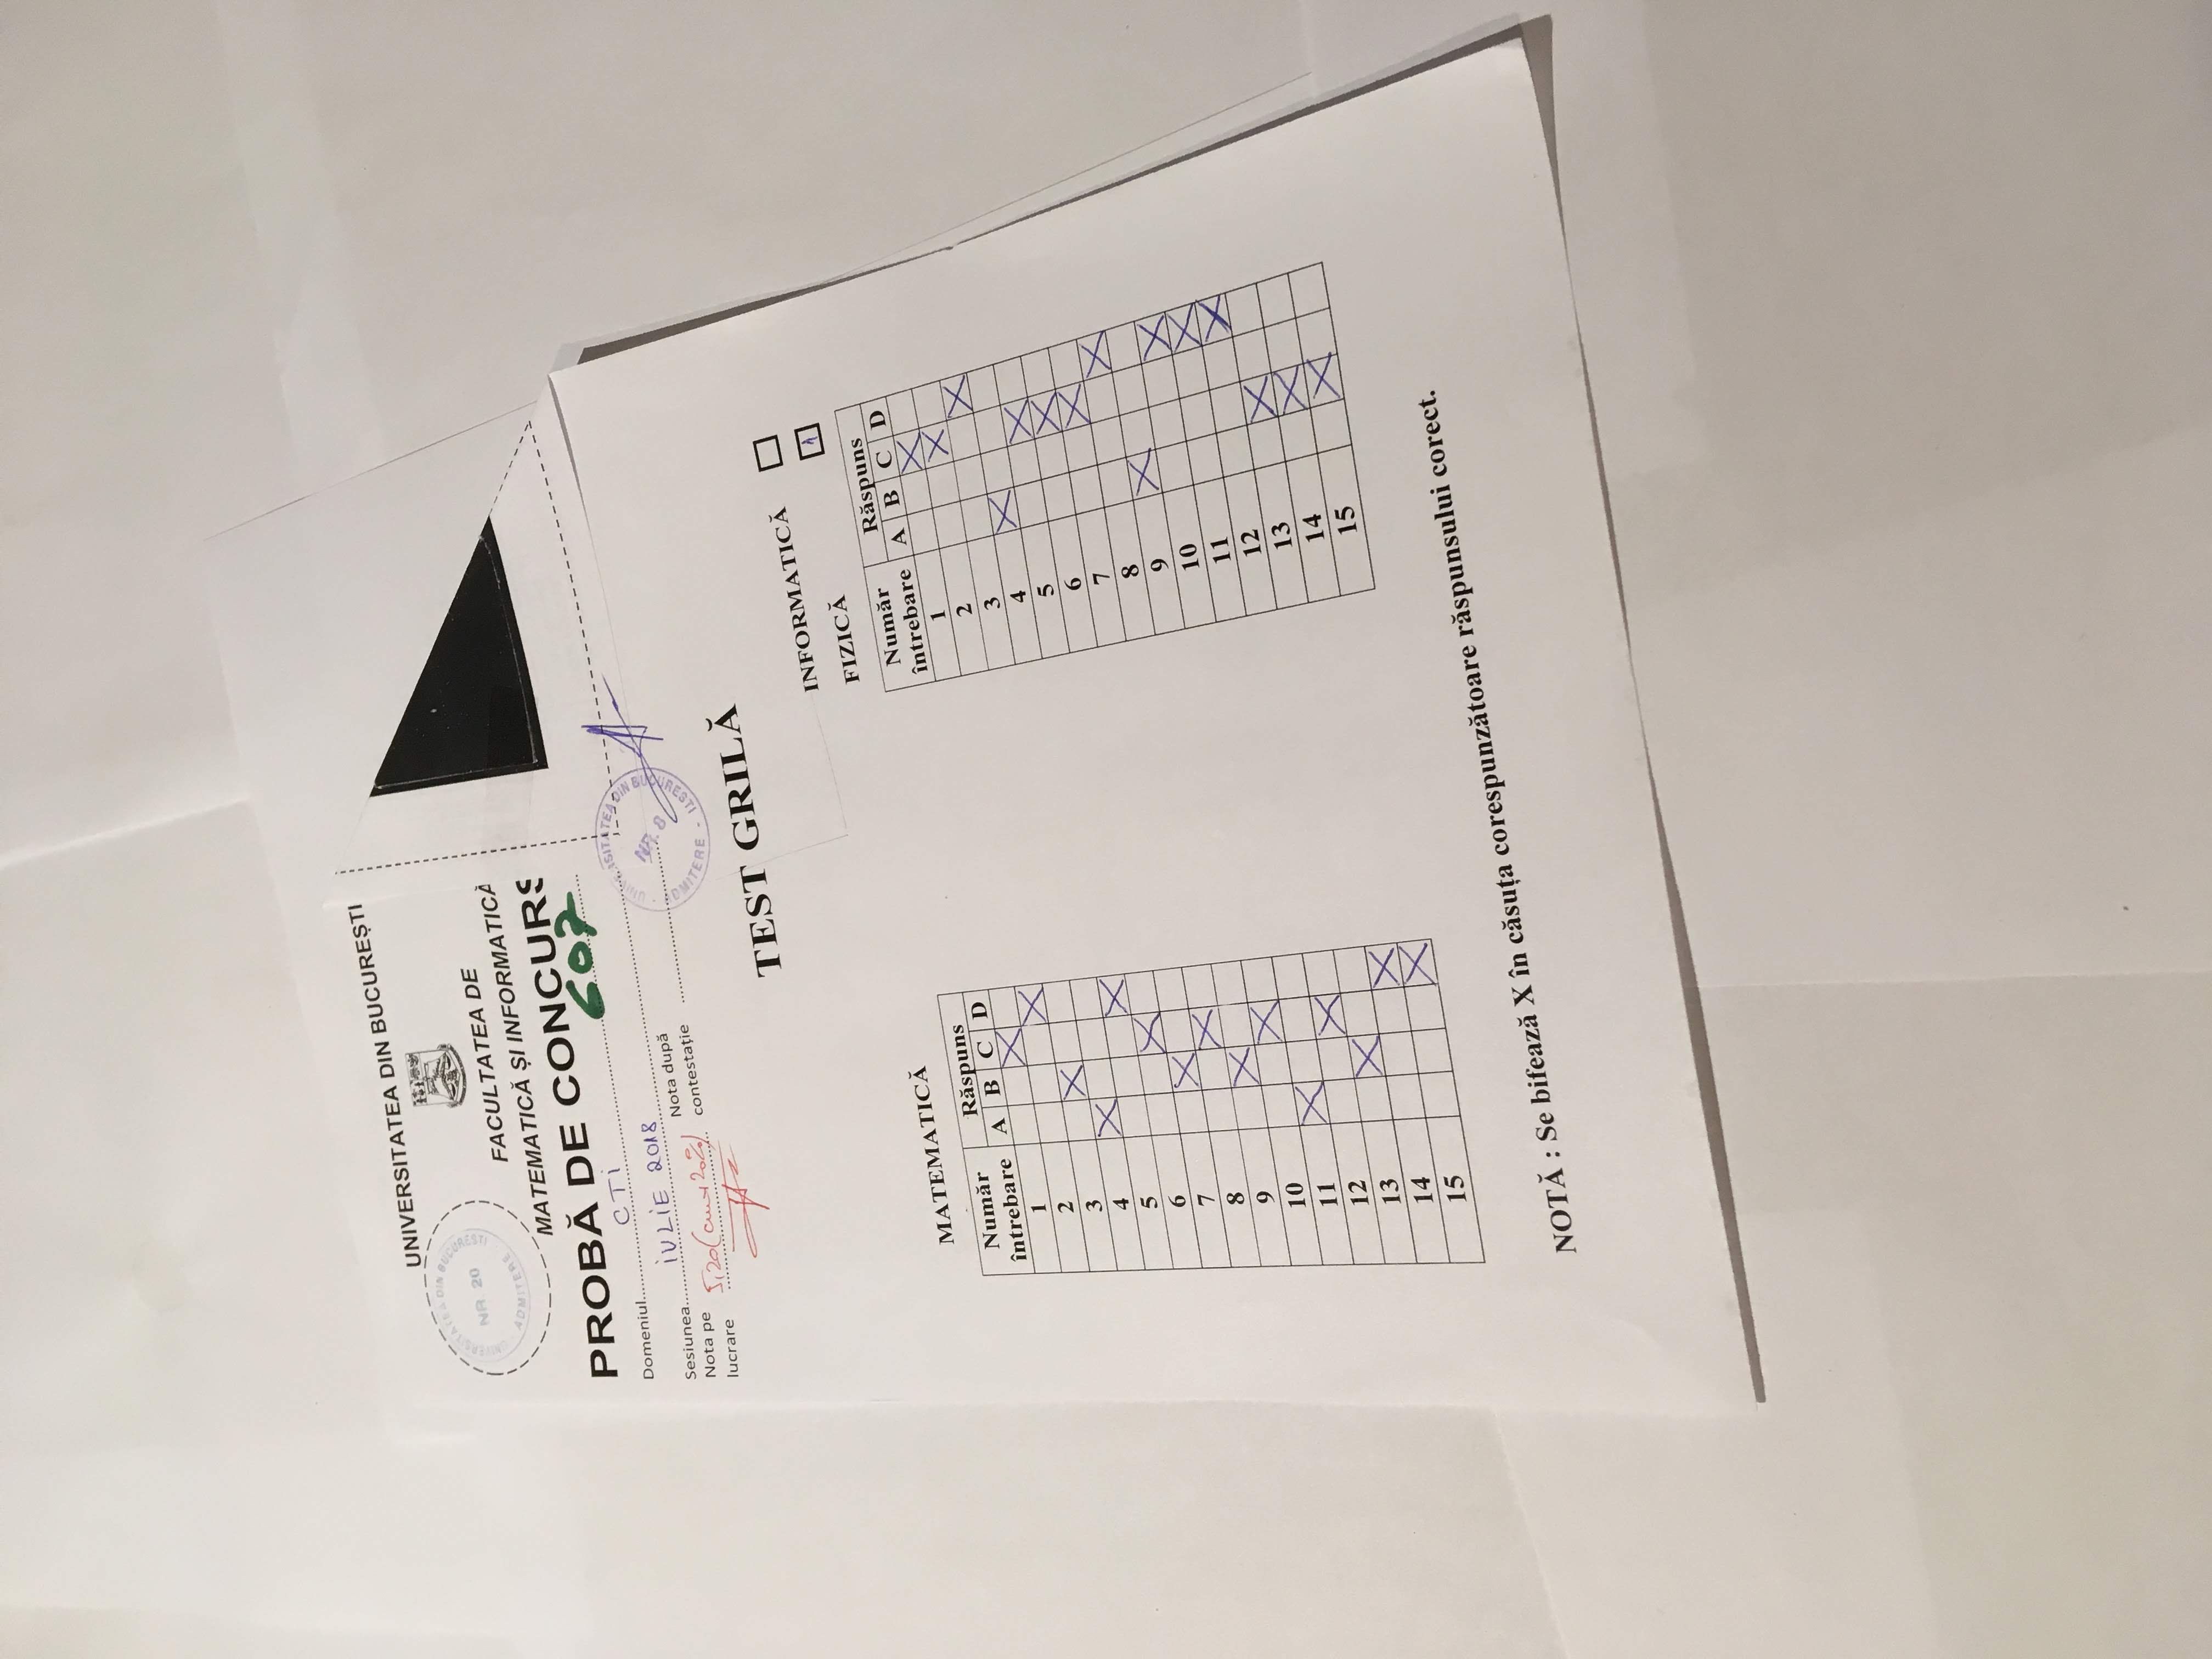 UNIVERSITATEA DIN BUCUREȘTI
UNIVERSITATEA DIN BUCUREȘTI
NR. 20
ADMITERE
FACULTATEA DE
MATEMATICĂ ȘI INFORMATICĂ
PROBĂ DE CONCURS
607
Domeniul CTI
Sesiunea IULIE 2018
Nota pe lucrare 5,20
Nota după contestație
UNIVERSITATEA DIN BUCUREȘTI - ADMITERE -
NR. 8
TEST GRILĂ
INFORMATICĂ
FIZICĂ
MATEMATICĂ
Număr întrebare Răspuns
A B C D
1 X
2 X
3 X
4 X
5 X
6 X
7 X
8 X
9 X
10 X
11 X
12 X
13 X
14 X
15 X
Număr întrebare Răspuns
A B C D
1 X
2 X
3 X
4 X
5 X
6 X
7 X
8 X
9 X
10 X
11 X
12 X
13 X
14 X
15 X
NOTĂ : Se bifează X în căsuța corespunzătoare răspunsului corect.